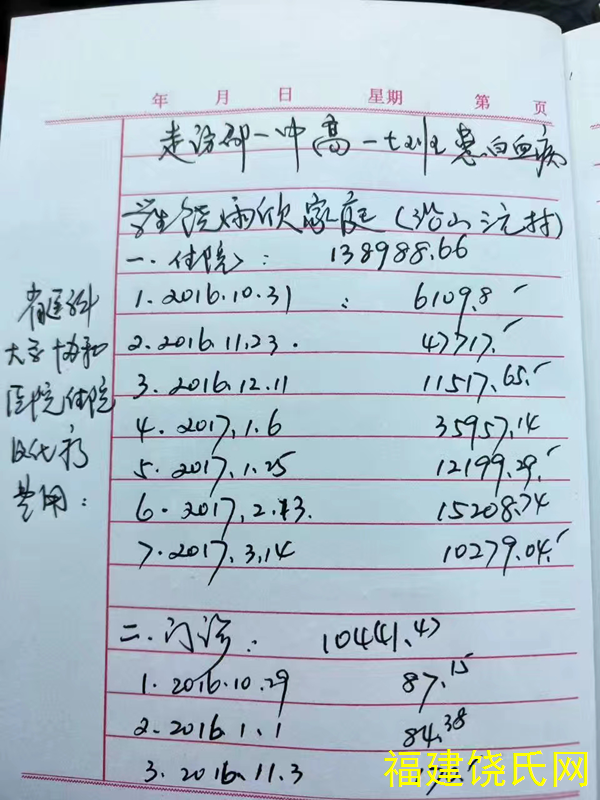 年 月 日 星期 第 页
走访邵一中高一七班患白血病
学生饶雨欣家庭(沿山三元村)
一. 住院: 138988.66
1. 2016.10.31 : 6109.8
2. 2016.11.23. 47717.
3. 2016.12.11 11517.65.
4. 2017.1.6 35957.14
5. 2017.1.25 12199.29.
6. 2017.2.13. 15208.74
7. 2017.3.14 10279.04.
省医科
大学协和
医院住院
及化疗
费用:
二. 门诊: 10441.47
1. 2016.10.29 87.15
2. 2016.1.1 84.38
3. 2016.11.3
福建饶氏网